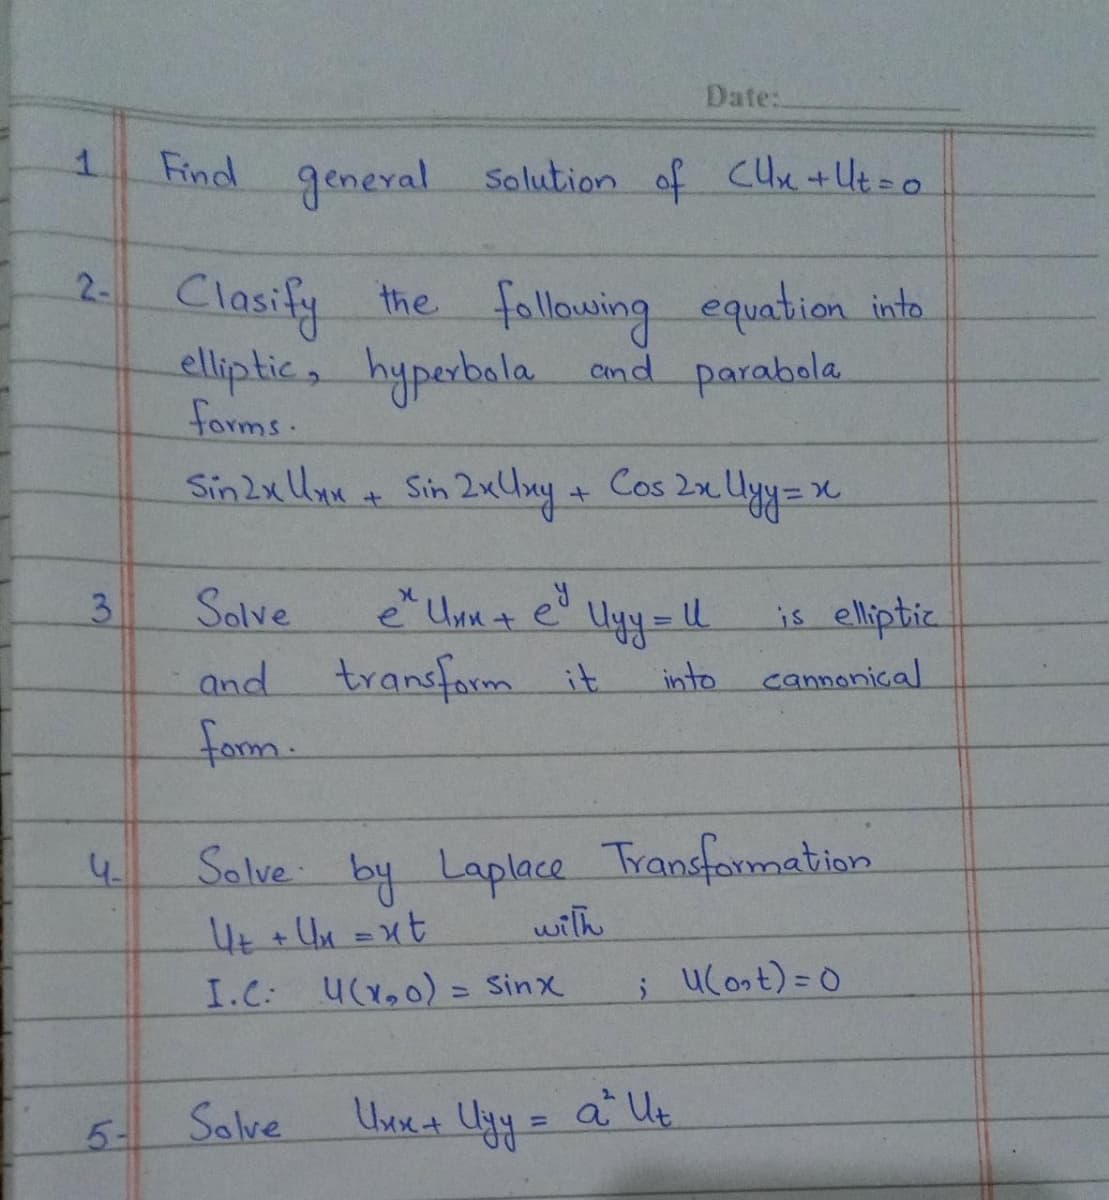 Date:
1 Find general solution of cUx + Ut = 0
2- Clasify the following equation into
elliptic, hyperbola and parabola
forms.
Sin2x Uxx + Sin 2x Uxy + Cos 2x Uyy = x
3 Solve eˣ Uxx + eʸ Uyy = U is elliptic
and transform it into cannonical
form.
4- Solve by Laplace Transformation
Ut + Ux = xt with
I.C: U(x,0) = Sinx ; U(0,t) = 0
5- Solve Uxx + Uyy = a² Ut